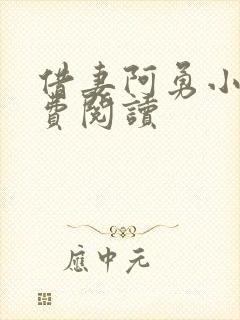 借妻阿勇小
費閱讀
應中元